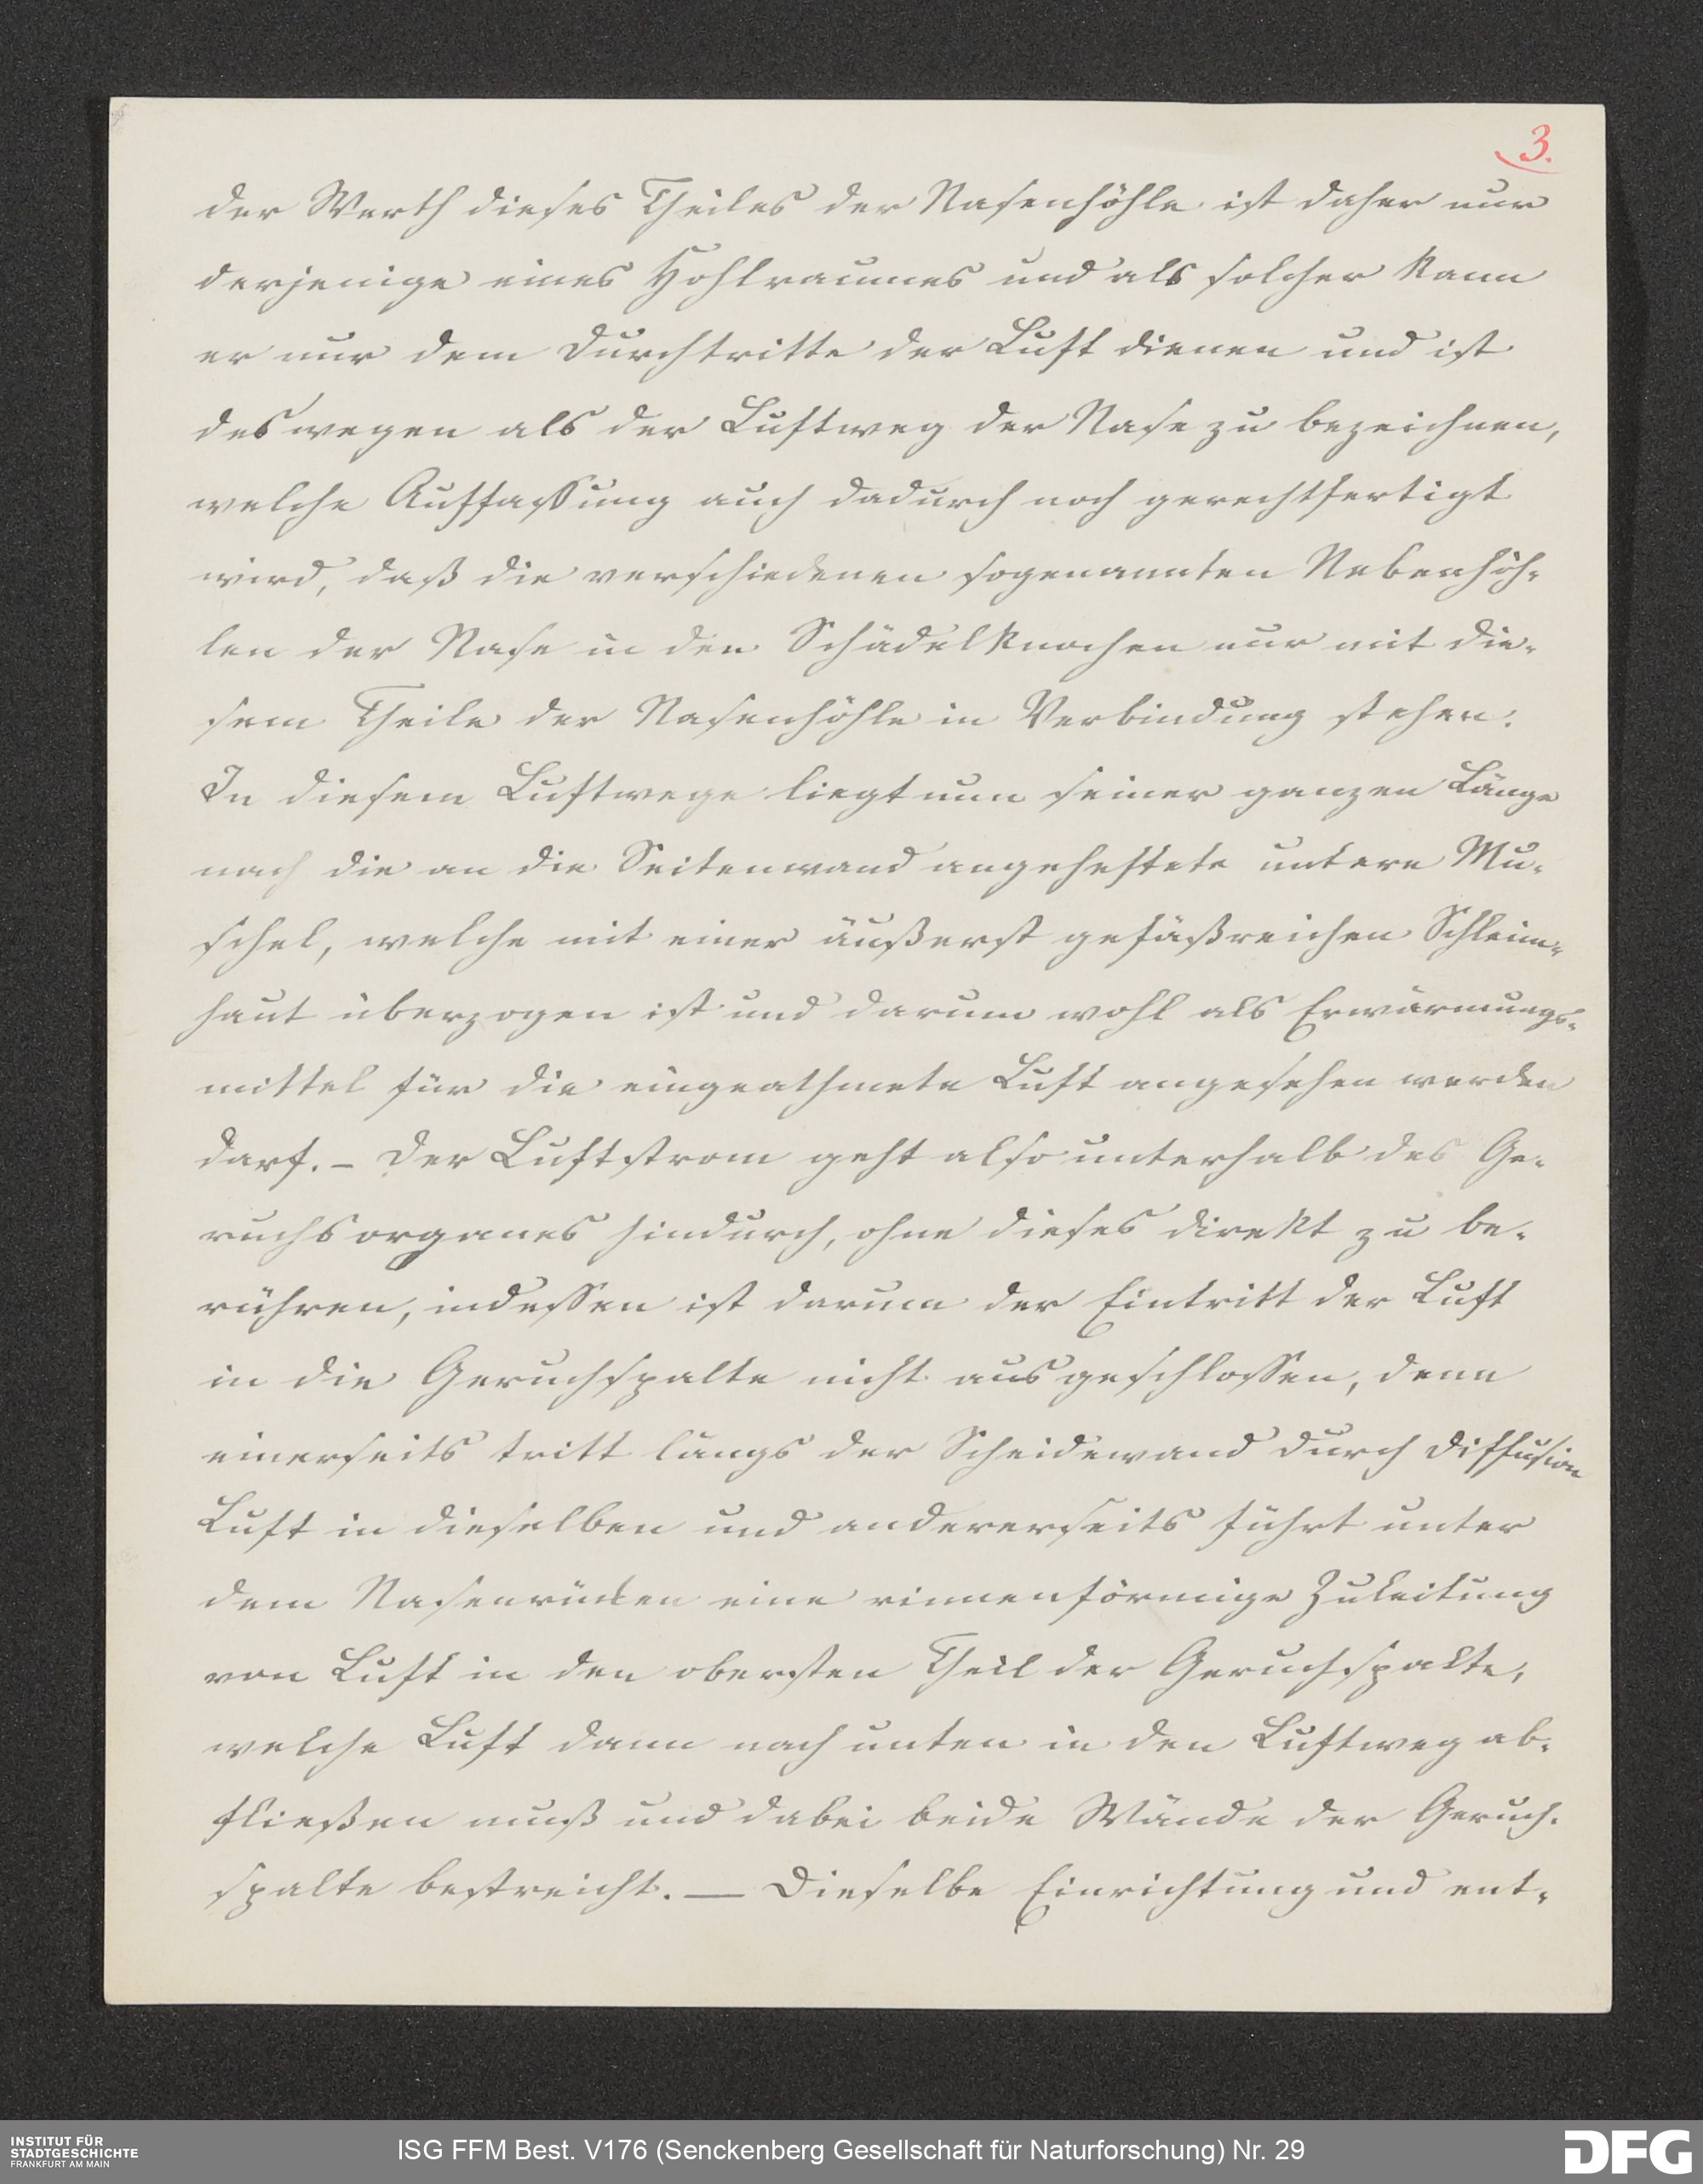 3.
der Werth dieses Theiles der Nasenhöhle ist daher nur
derjenige eines Hohlraumes und als solcher kann
er nur dem Durchtritte der Luft dienen und ist
deswegen als der Luftweg der Nase zu bezeichnen,
welche Auffassung auch dadurch noch gerechtfertigt
wird, daß die verschiedenen sogenannten Nebenhöh-
len der Nase in den Schädelknochen nur mit die-
sem Theile der Nasenhöhle in Verbindung stehen.
In diesem Luftwege liegt nun seiner ganzen Länge
nach die an die Seitenwand angeheftete untere Mu-
schel, welche mit einer äußerst gefäßreichen Schleim-
haut überzogen ist und darum wohl als Erwärmungs-
mittel für die eingeathmete Luft angesehen werden
darf. – Der Luftstrom geht also unterhalb des Ge-
ruchsorganes hindurch, ohne dieses direkt zu be-
rühren, indessen ist darum der Eintritt der Luft
in die Geruchspalte nicht ausgeschlossen, denn
einerseits tritt längs der Scheidewand durch Diffusion
Luft in dieselben und andererseits führt unter
dem Nasenrücken eine rinnenförmige Zuleitung
von Luft in den obersten Theil der Geruchspalte,
welche Luft dann nach unten in den Luftweg ab-
fließen muß und dabei beide Wände der Geruch-
spalte bestreicht. — Dieselbe Einrichtung und ent-
INSTITUT FÜR
STADTGESCHICHTE
FRANKFURT AM MAIN
ISG FFM Best. V176 (Senckenberg Gesellschaft für Naturforschung) Nr. 29
DFG